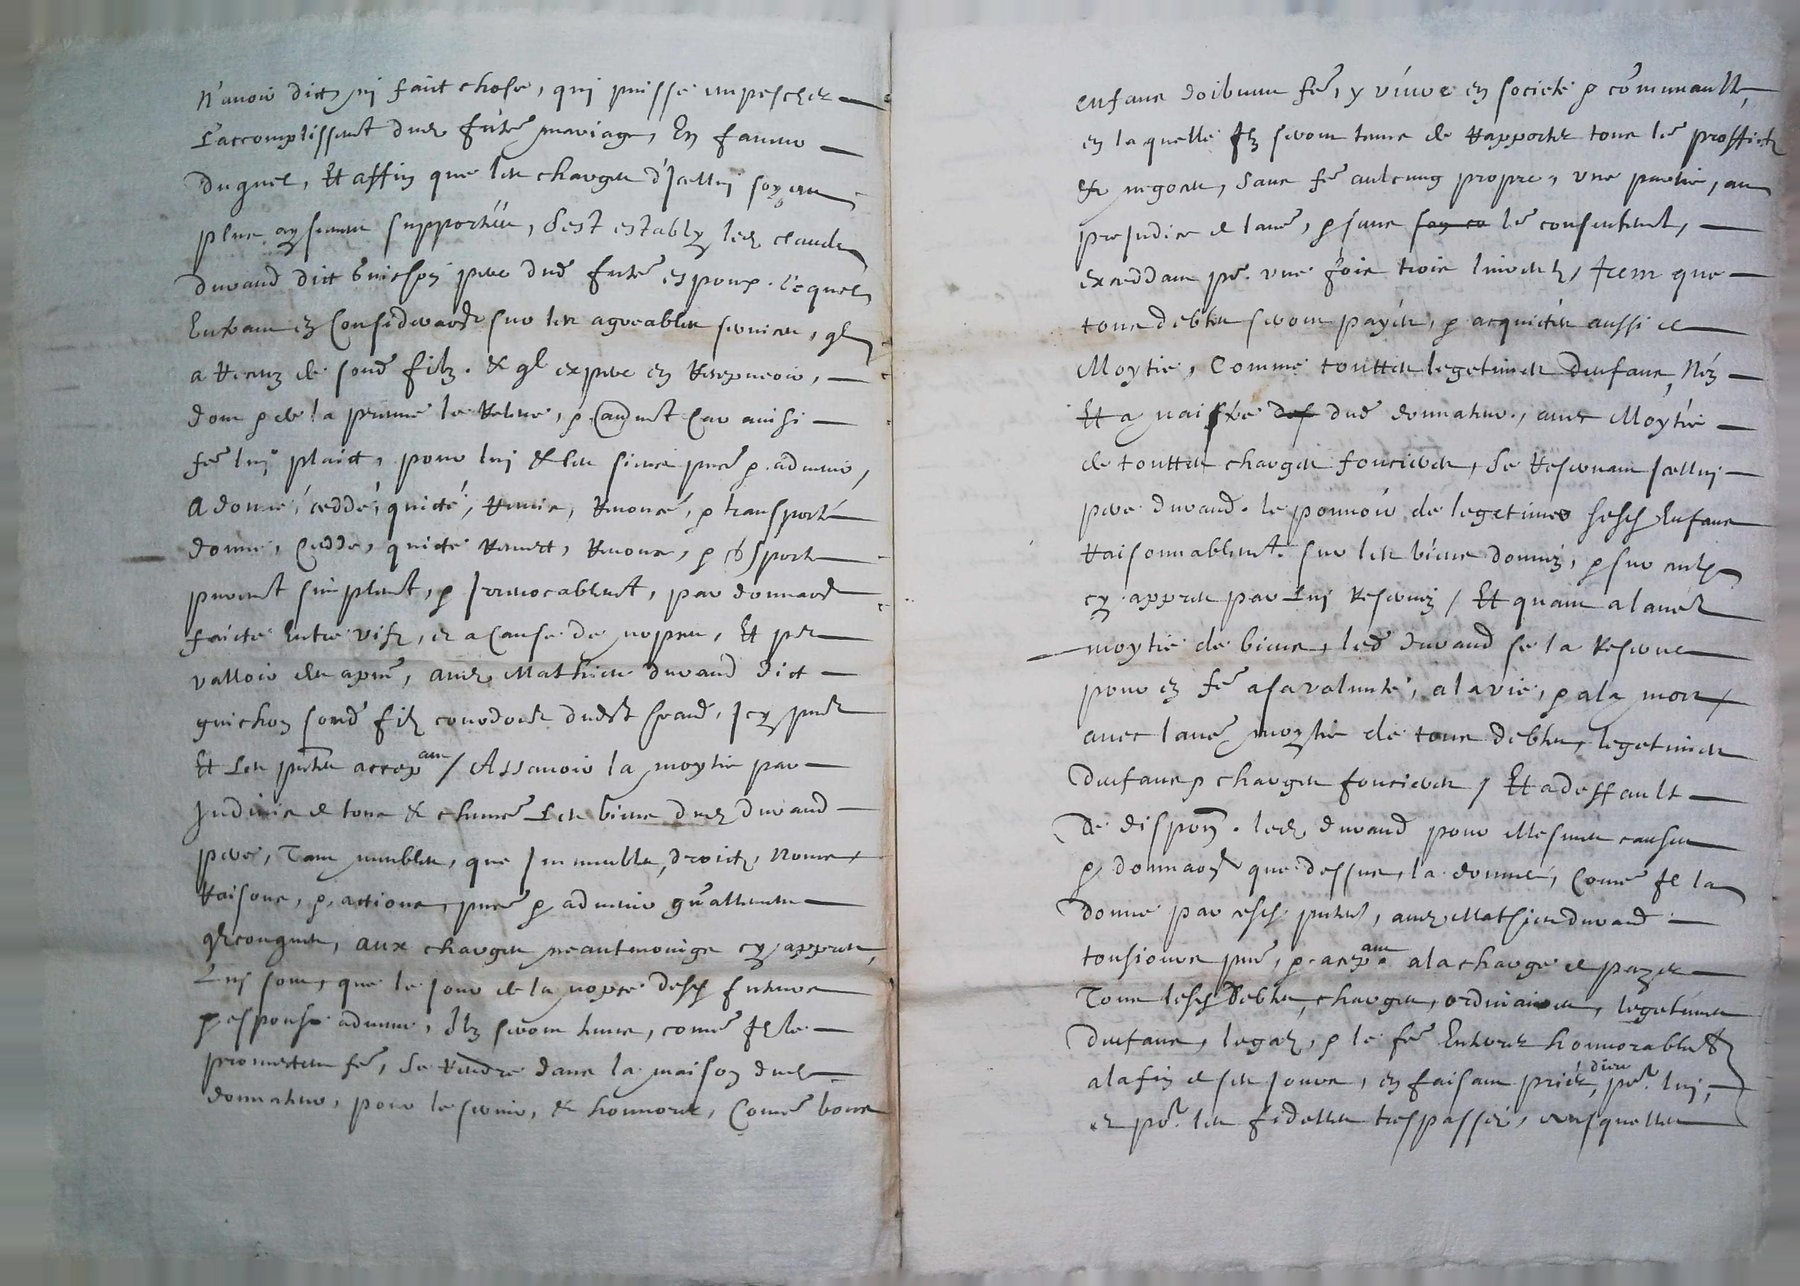 N'avoir dict ny faict chose, qui puisse empescher
L'accomplissemt dud futur mariage, En faveur
Duquel, Et affin que les charges d'Icelluy soyent
plus aysement supportées, S'est establÿ led claude
Durand dict Guichon pere dud futur espoux. Lequel
Entrant en Consideraon sur les agreables services, ql
a receuz de sond filz. & ql espere en recepvoir,
dont & de la preuve le releve, & Car ainsi
fe luy plaict, pour luy & les siens & advenir,
A donné, ceddé, quicté, remis, renoncé, & transporté
donne, Cedde, quicte remect, renonce, & tsporte
purement simplemt, & Irrevocablemt, par donnaon
faicte Entre vifz, et a Cause de nopces, Et po
valloir des apnt, aud Mathieu durand dict
guichon sond filz Icy pnt
Et acceptant / Assavoir la moytie par
Indivis de tous & chuns Les biens dud durand
pere, Tant meubles, que Immeubles, droictz, Noms
Raisons, & actions, pns & advenir gnallement
qlconques, aux charges neantmoings cy apres,
Luy sont, que le jour de la nopce desd futurs
& espouse advenu, Ilz seront tenus, come Ilz le
promectent fe, Se rendre dans la maison dud
donnateur, pour le servir, & honnorer, Come bons
enfans doibvent fe, y vivre en societe & communaulté,
en laquelle Ilz seront tenus de Rapporter tous les proffictz
& negoces, Sans fe aulcung propre, une partie, au
prejudice de laue, & sans le consentemt,
exceddant po. une fois trois livres, Item que
tous debtes seront payés, & acquictés aussi de
Moytie, Comme touttes legetimes Denfans, Néz
Et a naistre dud donnateur, avec Moytié
de touttes charges foncieres, Se Reservant Icelluy
pere durand. le pouvoir de legetimer sesd Enfans
Raisonnablemt. sur les biens donnéz, & sur
cy apres par Luy Reservez / Et quant a laue
moytié de biens, led durand se la Reserve
pour en fe a sa volunté, a la vie, & a la mort
avec laue moytié de tous debtes, legetimes
Denfans & charges foncieres / Et a deffault
De dispon. led durand pour Mesmes causes
& donnaon que dessus, la donne, Come Il la
donne par cesd pntes, aud Mathieu durand
tousiours pnt, & acceptant a la charge de payer
Tous lesd Debtes, charges, ordinaires, legetimes
Denfans, legatz, & le fe Enterrer honnorablemt
a la fin de ses jours, en faisant prier dieu, po. luy,
et po. les fidelles trespassés, ausquelles